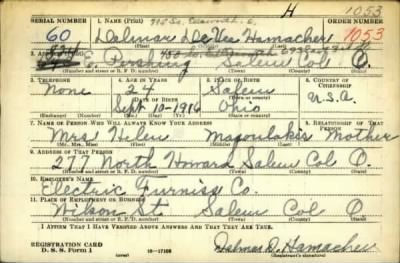 H 1053
SERIAL NUMBER 1. NAME (Print) 915 So. Ellsworth. E. ORDER NUMBER
60 Dalmar DeVer Hamacher 1053
(First) (Middle) (Last)
2. ADDRESS (Print)
824 E. Pershing Salem Col O.
(Number and street or R. F. D. number) (Town) (County) (State)
3. TELEPHONE 4. AGE IN YEARS 5. PLACE OF BIRTH 6. COUNTRY OF CITIZENSHIP
None 24 Salem
DATE OF BIRTH
Sept. 10-1916 Ohio U.S.A.
(Mo.) (Day) (Yr.) (State or country)
7. NAME OF PERSON WHO WILL ALWAYS KNOW YOUR ADDRESS 8. RELATIONSHIP OF THAT PERSON
Mrs. Helen Magoulakis Mother
(Mr., Mrs., Miss) (First) (Middle) (Last)
9. ADDRESS OF THAT PERSON
277 North Howard Salem Col O.
(Number and street or R. F. D. number) (Town) (County) (State)
10. EMPLOYER'S NAME
Electric Furniss Co.
11. PLACE OF EMPLOYMENT OR BUSINESS
Wilson St. Salem Col O
(Number and street or R. F. D. number) (Town) (County) (State)
I AFFIRM THAT I HAVE VERIFIED ABOVE ANSWERS AND THAT THEY ARE TRUE.
REGISTRATION CARD
D. S. S. Form 1 16-17105 Dalmar D. Hamacher
(over)